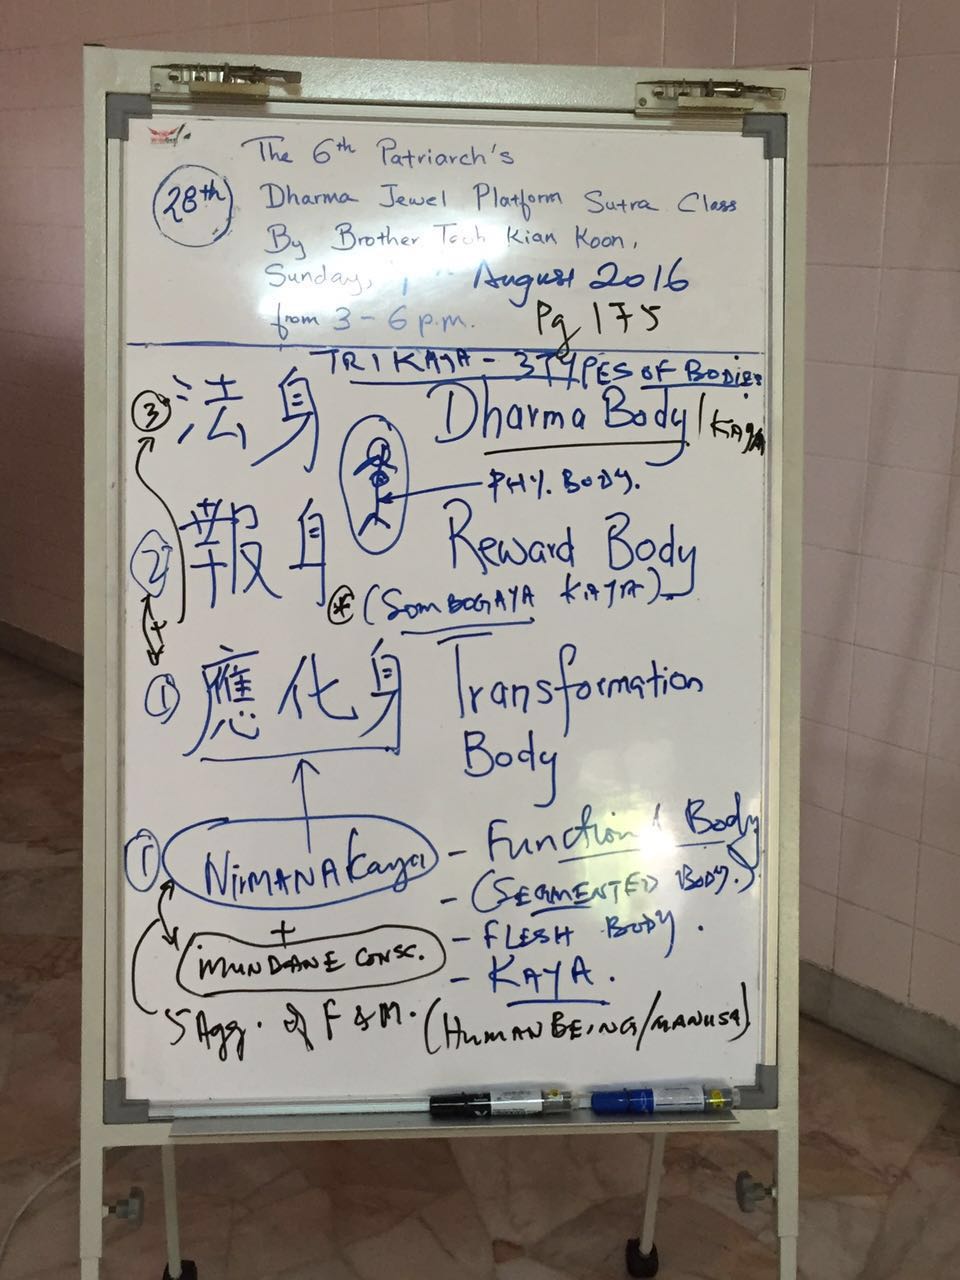 The 6th Patriarch's
28th
Dharma Jewel Platform Sutra Class
By Brother Teoh Kian Koon,
Sunday, August 2016
from 3 - 6 p.m. Pg 175
TRIKAYA - 3 TYPES OF BODIES
③ 法身 Dharma Body / KAYA
PHY. BODY.
② 報身 Reward Body
* (SOMBOGAYA KAYA)
① 應化身 Transformation
Body
① NirMANAKaya - Functional Body
- (SEGMENTED BODY.)
+ - FLESH BODY.
MUNDANE CONSC. - KAYA.
5 Agg. of F & M. (HUMAN BEING/MANUSA)